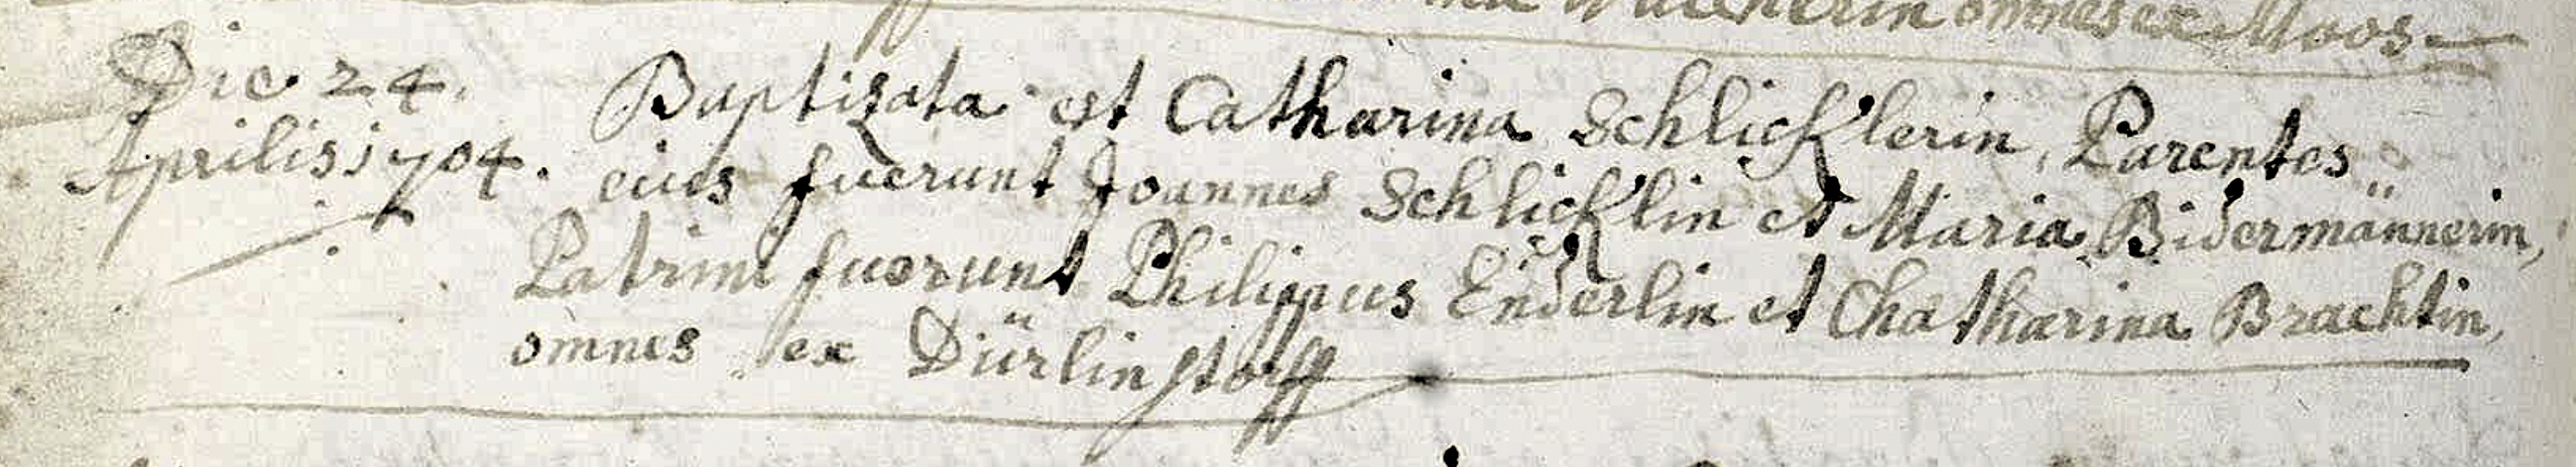 omnes ex Moos.
Die 24. Baptizata est Catharina Schlicklerin, Parentes
Aprilis 1704. eius fuerunt Joannes Schlicklin et Maria Bidermännerin,
Patrini fuerunt Philippus Enderlin et Chatharina Brachtin,
omnes ex Dürlinstorff